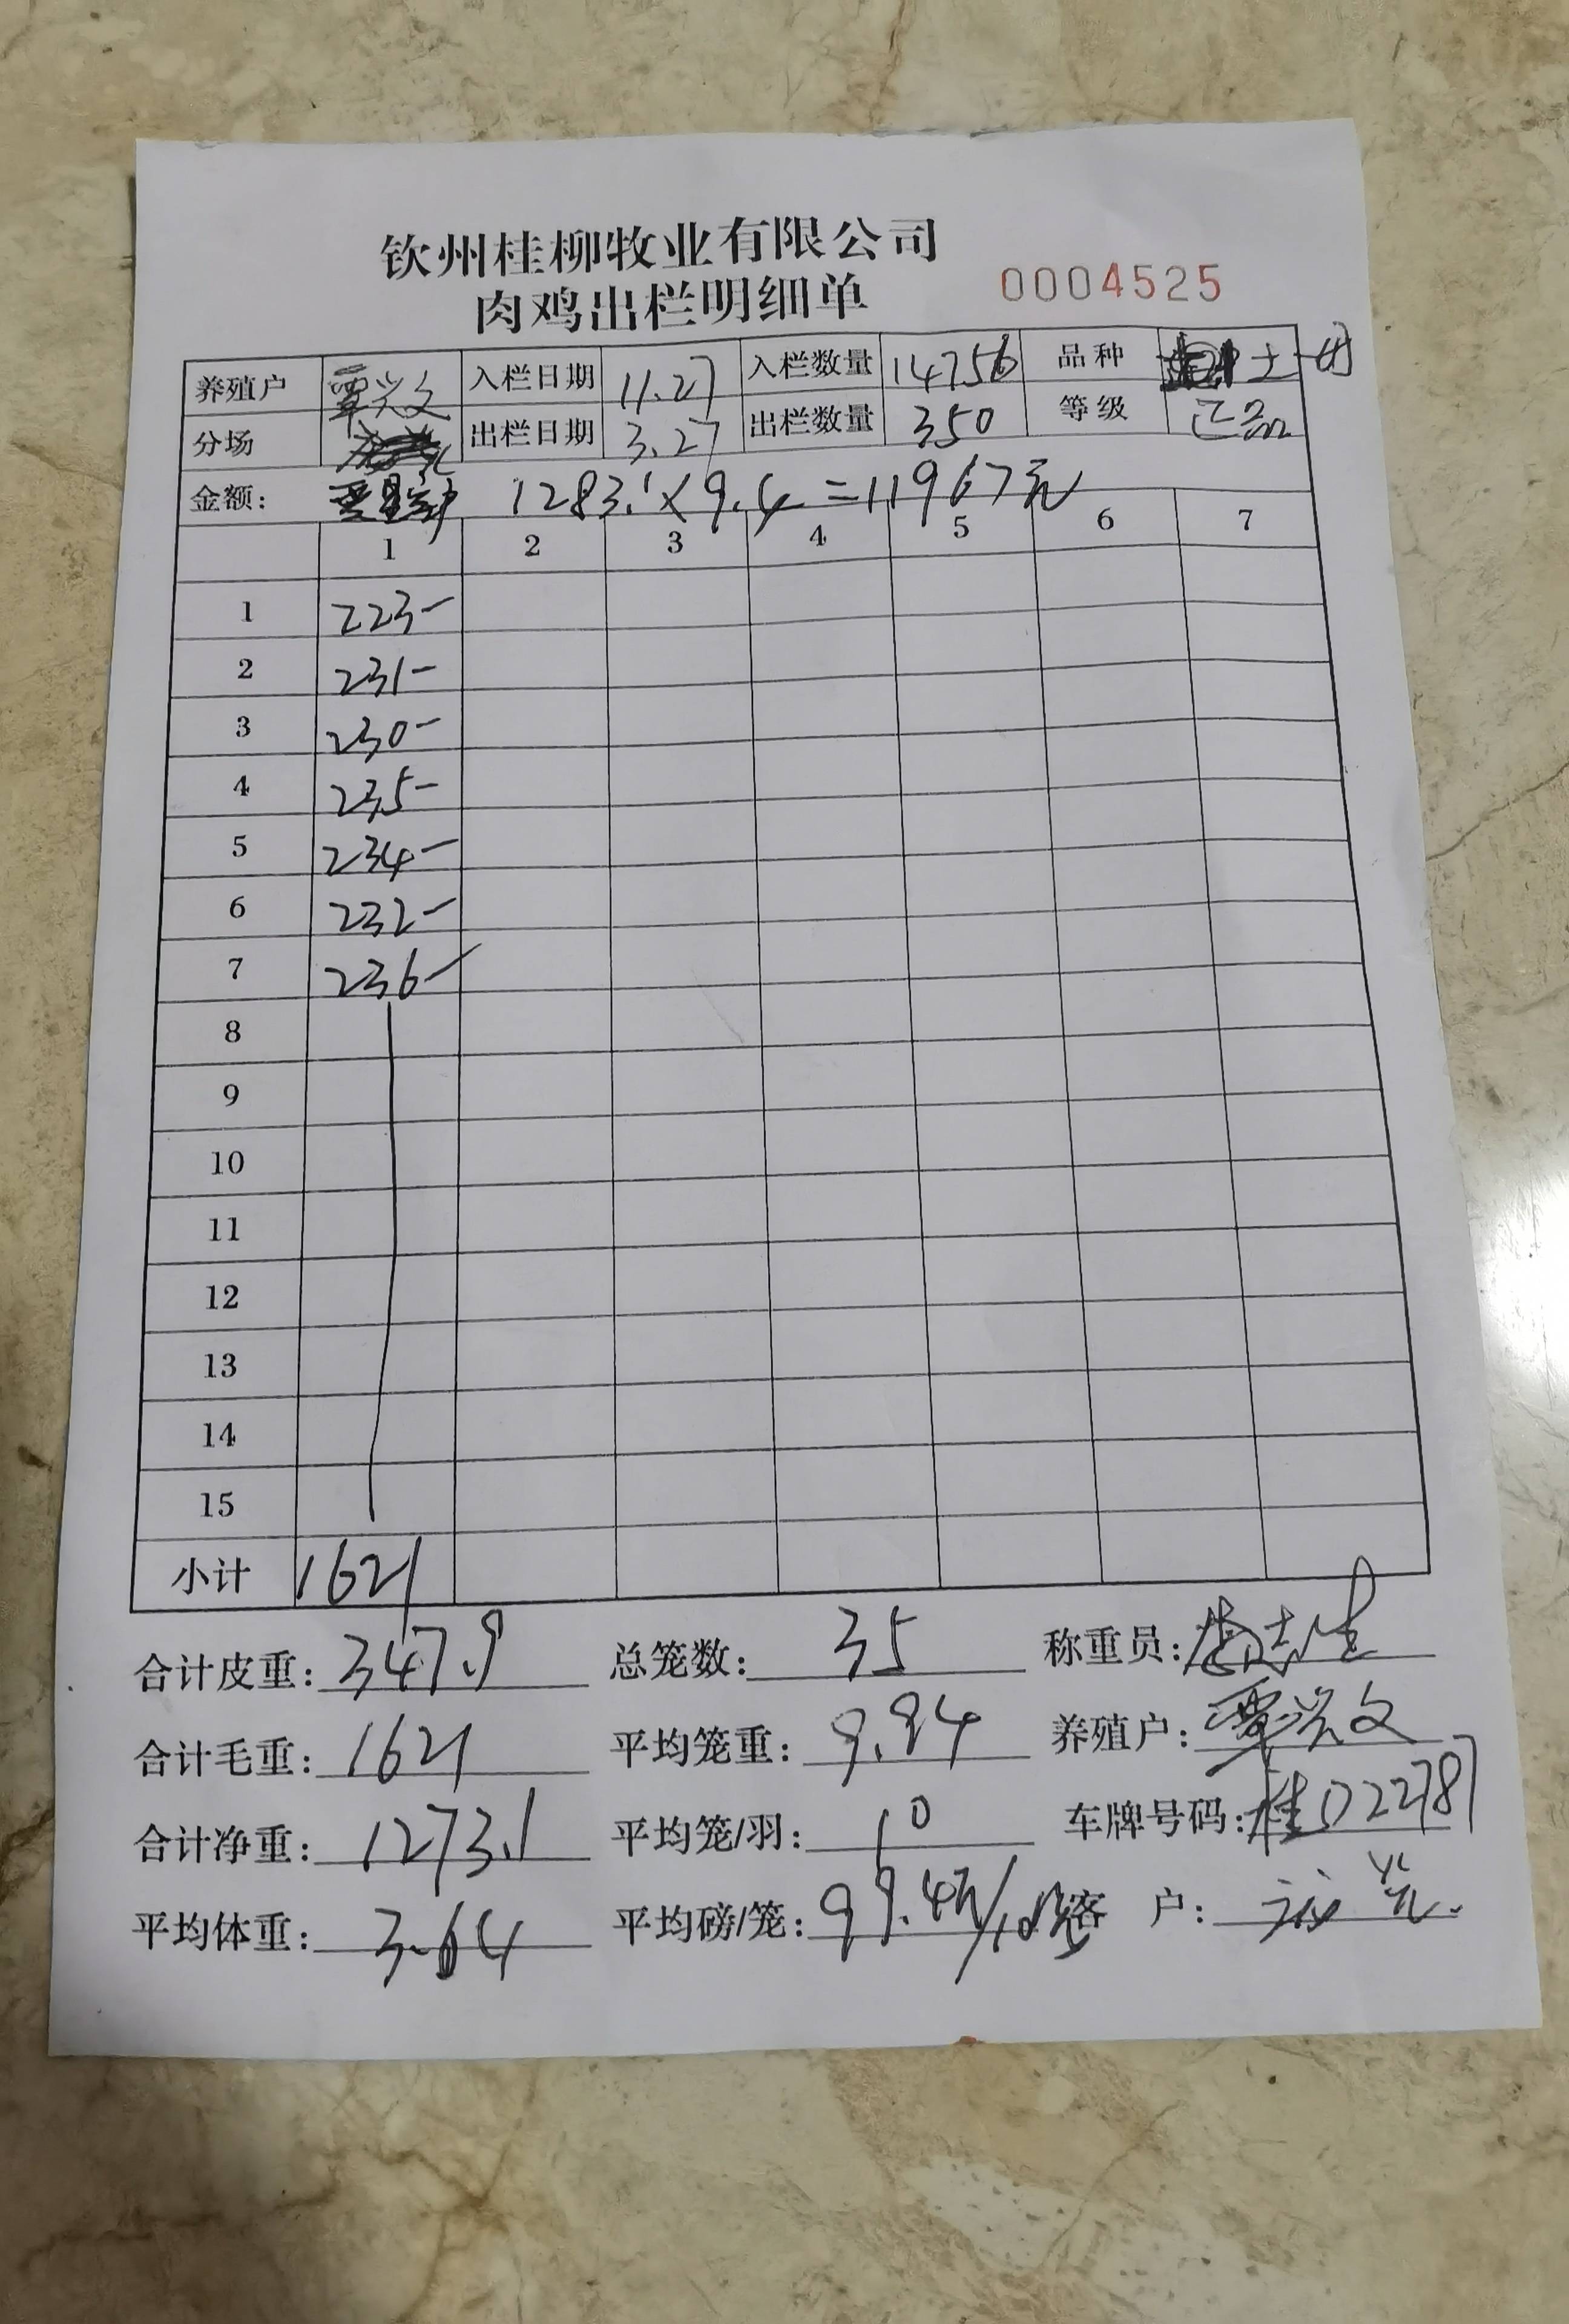 钦州桂柳牧业有限公司
肉鸡出栏明细单 0004525
养殖户 覃兴文 入栏日期 11.27 入栏数量 14756 品种 土
分场 出栏日期 3.27 出栏数量 350 等级 正品
金额: 1283.1×9.4=11967元
1 2 3 4 5 6 7
1 223-
2 231-
3 230-
4 235-
5 234-
6 232-
7 236-
8
9
10
11
12
13
14
15
小计 1621
合计皮重: 347.9 总笼数: 35 称重员: 志
合计毛重: 1621 平均笼重: 9.94 养殖户: 覃兴文
合计净重: 1273.1 平均笼/羽: 10 车牌号码: 桂D22787
平均体重: 3.64 平均磅/笼: 99.4 客 户: